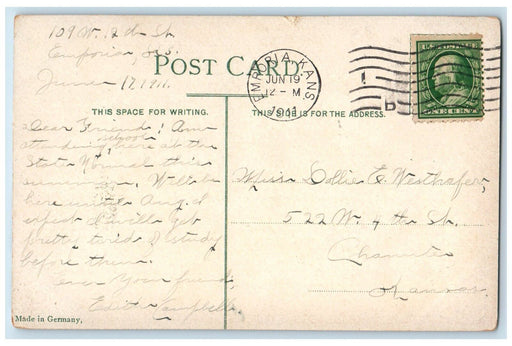 109 W. 12th St.
Emporia, Kas.
June 17, 1911.
POST CARD.
EMPORIA KANS.
JUN 19
12 - M
1911
1
THIS SPACE FOR WRITING.
THIS SIDE IS FOR THE ADDRESS.
Dear Friend; Am
attending school here at the
State Normal this
summer. Will be
here until Aug. I
expect I will get
pretty tired of study
before then.
Ever Your friend,
Miss Dollie E. Westhafer,
522 W. 4 th St.
Chanute
Kansas
Made in Germany.